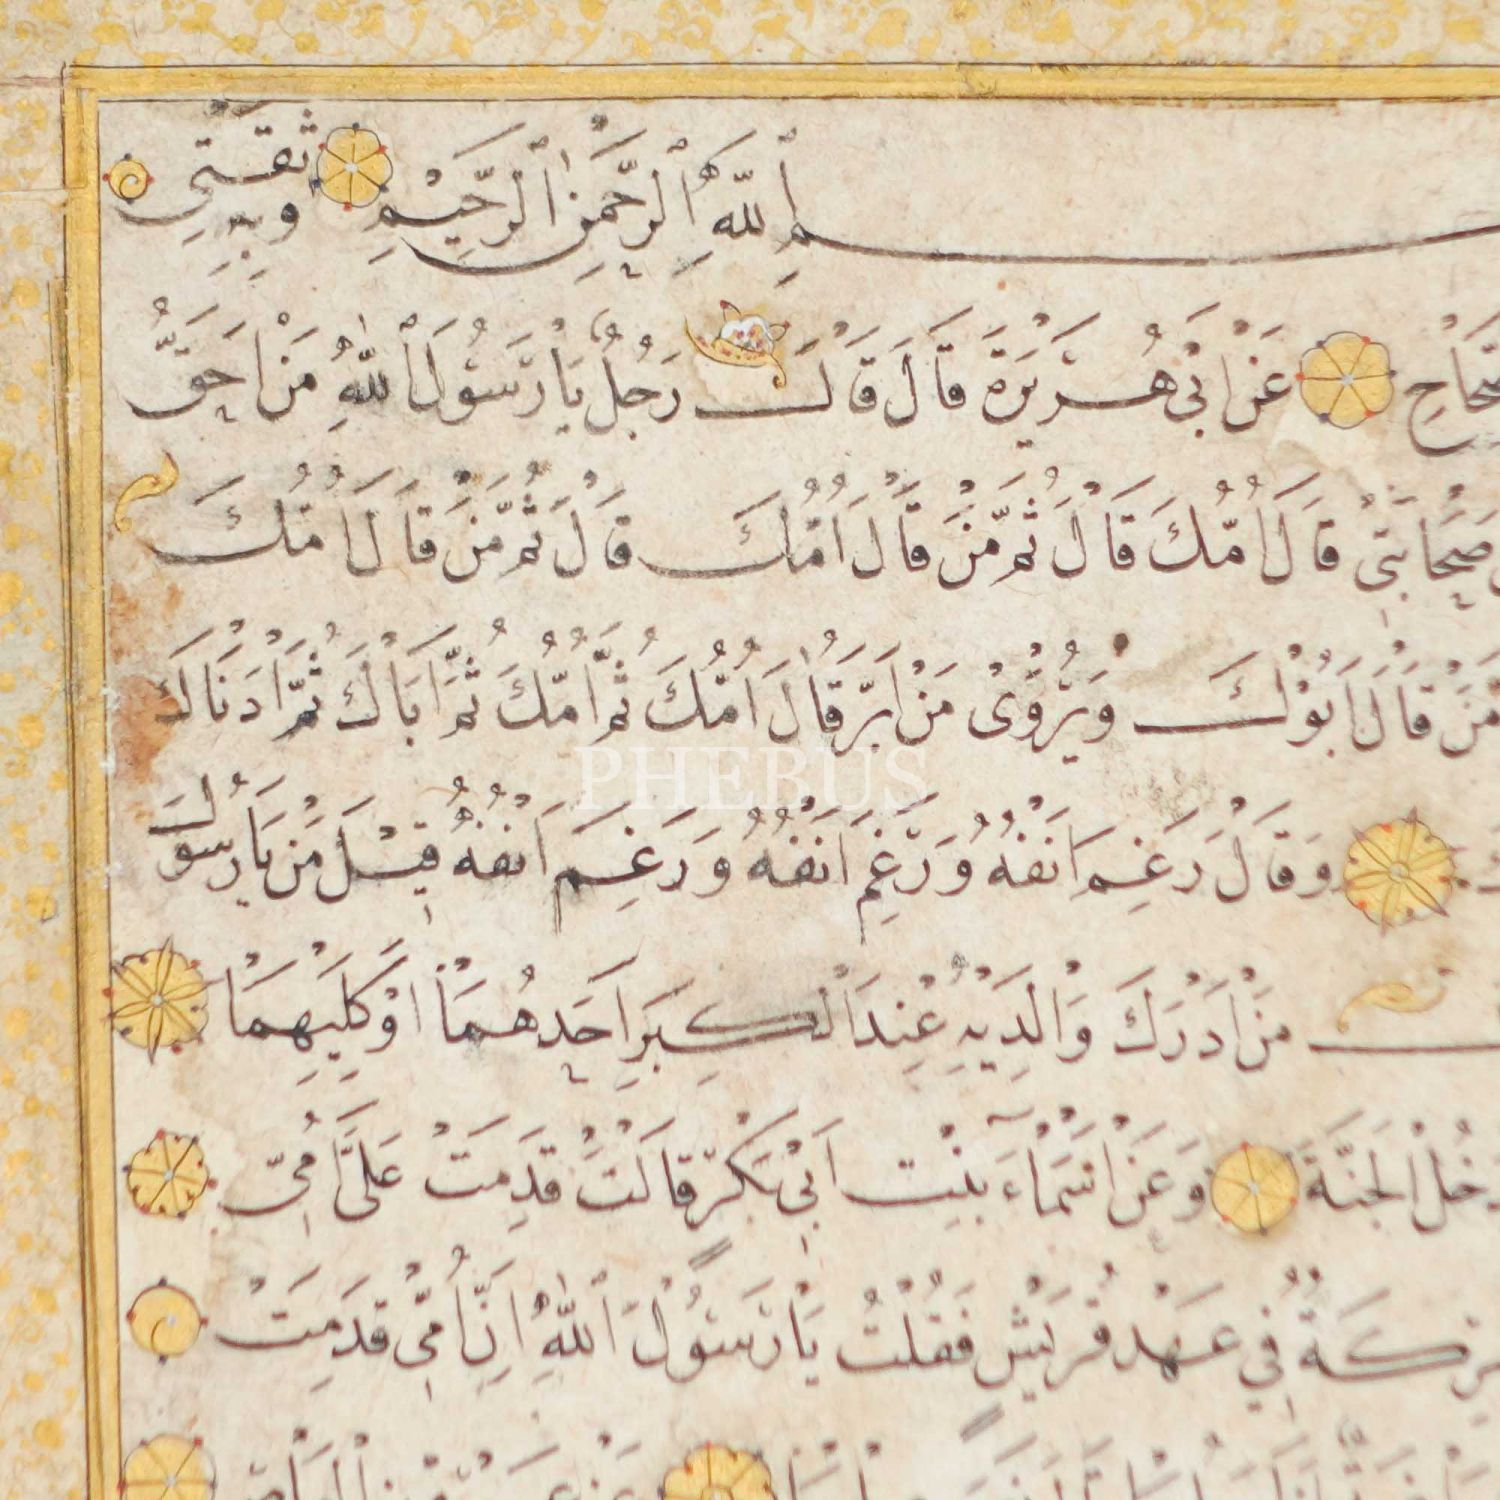 ـم الله الرحمن الرحيم وبه ثقتي
صحاح عَنْ اَبِي هُرَيْرَةَ قَالَ قَالَ رَجُلٌ يَا رَسُولَ اللهِ مَنْ اَحَقُّ
صَحَابَتِي قَالَ اُمُّكَ قَالَ ثُمَّ مَنْ قَالَ اُمُّكَ قَالَ ثُمَّ مَنْ قَالَ اُمُّكَ
مَنْ قَالَ اَبُوْكَ وَيُرْوٰى مَنْ اَبَرُّ قَالَ اُمُّكَ ثُمَّ اُمُّكَ ثُمَّ اَبَاكَ ثُمَّ اَدْنَاكَ
وَقَالَ رَغِمَ اَنْفُهُ وَرَغِمَ اَنْفُهُ وَرَغِمَ اَنْفُهُ قِيْلَ مَنْ يَا رَسُولَ
مَنْ اَدْرَكَ وَالِدَيْهِ عِنْدَ الْكِبَرِ اَحَدَهُمَا اَوْ كِلَيْهِمَا
دْخُلْ الْجَنَّةَ وَعَنْ اَسْمَاءَ بِنْتِ اَبِيْ بَكْرٍ قَالَتْ قَدِمَتْ عَلَيَّ اُمِّيْ
كَةٌ فِي عَهْدِ قُرَيْشٍ فَقُلْتُ يَا رَسُولَ اللهِ اِنَّ اُمِّيْ قَدِمَتْ
PHEBUS